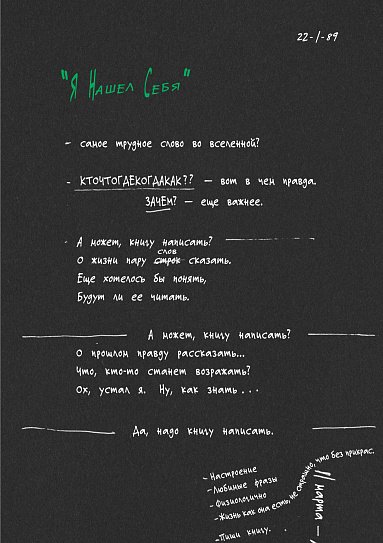 22-1-89
"Я Нашел Себя"
- самое трудное слово во вселенной?
- КТОЧТОГДЕКОГДАКАК?? — вот в чем правда.
ЗАЧЕМ? — еще важнее.
- А может, книгу написать?
слов
О жизни пару строк сказать.
Еще хотелось бы понять,
Будут ли ее читать.
А может, книгу написать?
О прошлом правду рассказать...
Что, кто-то станет возражать?
Ох, устал я. Ну, как знать...
Да, надо книгу написать.
- Настроение
- Любимые фразы
- Физиологично
- Жизнь как она есть, не страшно, что без прикрас.
- Пиши книгу.
11 марта —